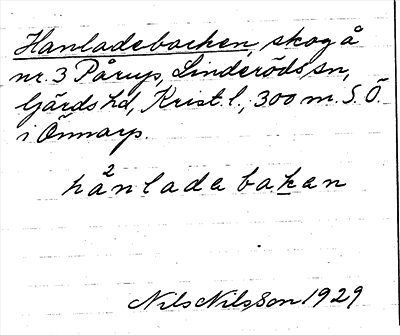 Hanladebacken, skog å
nr. 3 Pårup, Linderöds sn,
Gärds hd, Krist. l., 300 m. S. Ö.
i Önnarp.
hånladebakan
Nils Nilsson 1929